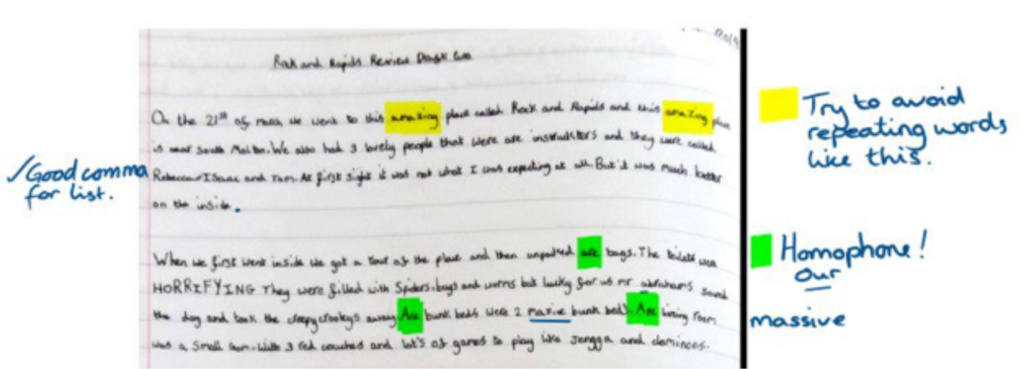 Rock and Rapids Review Draft two
On the 21st of march we went to this amazing place called Rock and Rapids and this amazing place
is near South Molton. We also had 3 lovely people that were are instructors and they were called
Rebecca, Isaac and Tom. At first sight it was not what I was expecting at all. But it was much better
on the inside.
When we first went inside we got a tour of the place and then unpacked are bags. The toilets were
HORRIFYING They were filled with Spiders, bugs and worms but lucky for us mr abrahams saved
the day and took the creepycrawleys away. Are bunk beds were 2 masive bunk beds. Are living room
was a small room. With 3 red couches and lot's of games to play like Jengga and dominoes.
✓Good comma
for list.
Try to avoid
repeating words
like this.
Homophone!
our
massive